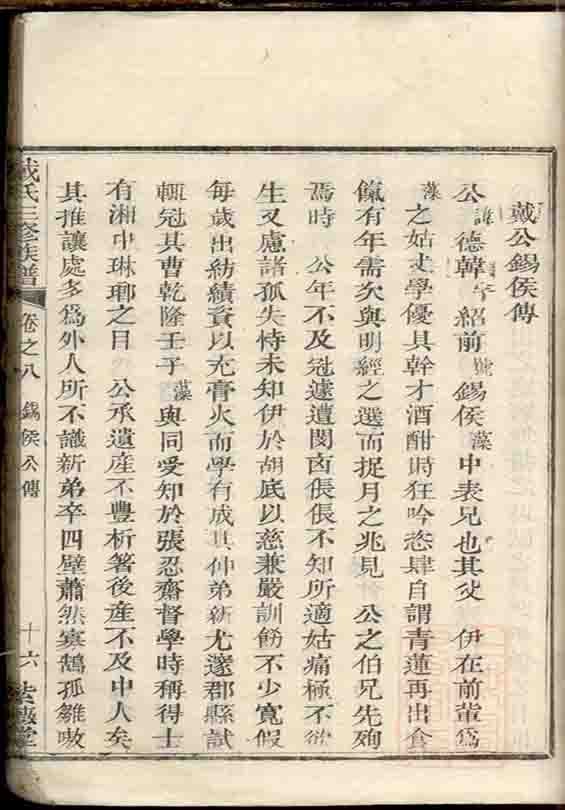 戴公錫侯傳
公諱德韓字紹前號錫侯藻中表兄也其父 伊在前輩爲
藻之姑丈學優具幹才酒酣時狂吟恣肆自謂青蓮再出食
餼有年需次與明經之選而捉月之兆見 公之伯兄先殉
焉時 公年不及冠遽遭閔凶倀倀不知所適姑痛極不欲
生又慮諸孤失恃未知伊於胡底以慈兼嚴訓飭不少寬假
每歲出紡績資以充膏火而學有成其仲弟新尤邃郡縣試
輒冠其曹乾隆壬子藻與同受知於張忍齋督學時稱得士
有湘中琳瑯之目 公承遺産不豐析箸後産不及中人矣
其推讓處多爲外人所不識新弟卒四壁蕭然寡鵠孤雛嗷
戴氏三修族譜 卷之八 錫侯公傳 十六 紫薇堂